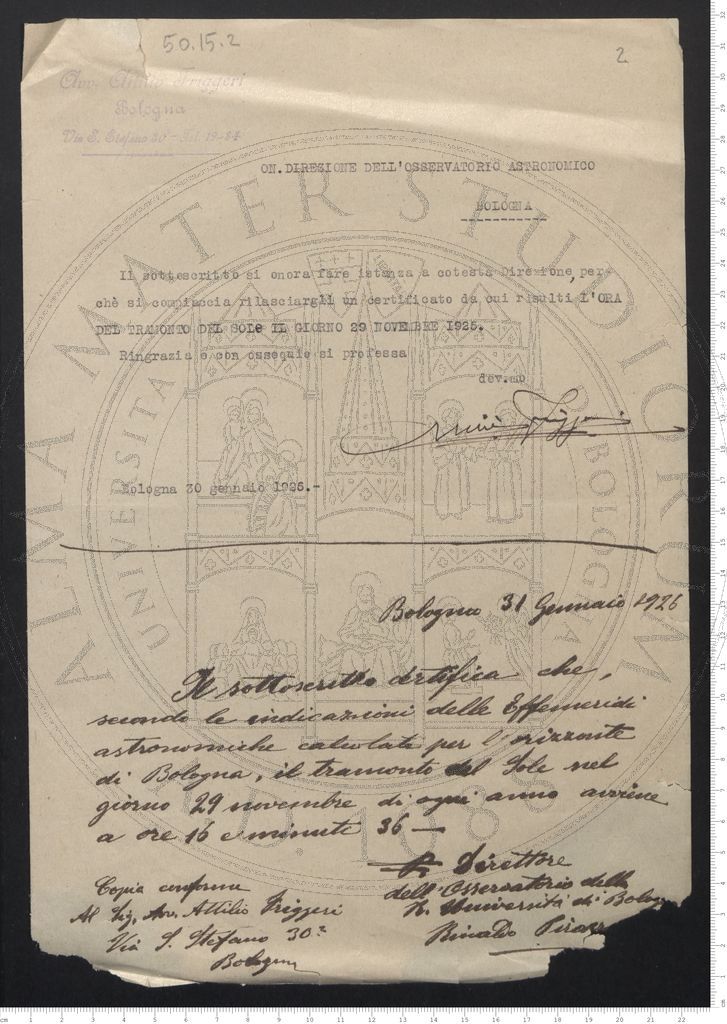 50.15.2
2
Avv. Attilio Friggeri
Bologna
Via S. Stefano 30 - Tel. 19-84
ON. DIREZIONE DELL'OSSERVATORIO ASTRONOMICO
BOLOGNA
Il sottoscritto si onora fare istanza a cotesta Direzione, per-
chè si compiaccia rilasciargli un certificato da cui risulti L'ORA
DEL TRAMONTO DEL SOLE IL GIORNO 29 NOVEMBRE 1925.
Ringrazia e con ossequio si professa
dev.mo
Bologna 30 gennaio 1926.-
Bologna 31 Gennaio 1926
Il sottoscritto certifica che,
secondo le indicazioni delle Effemeridi
astronomiche calcolate per l'orizzonte
di Bologna, il tramonto del Sole nel
giorno 29 novembre di ogni anno avviene
a ore 16 e minuti 36 —
Il Direttore
dell'Osservatorio della
R. Università di Bologna
Rinaldo
Copia conforme
Al Sig. Avv. Attilio Friggeri
Via S. Stefano 30
Bologna
ALMA MATER STUDIORUM
UNIVERSITA
BOLOGNA
A.D. 1088